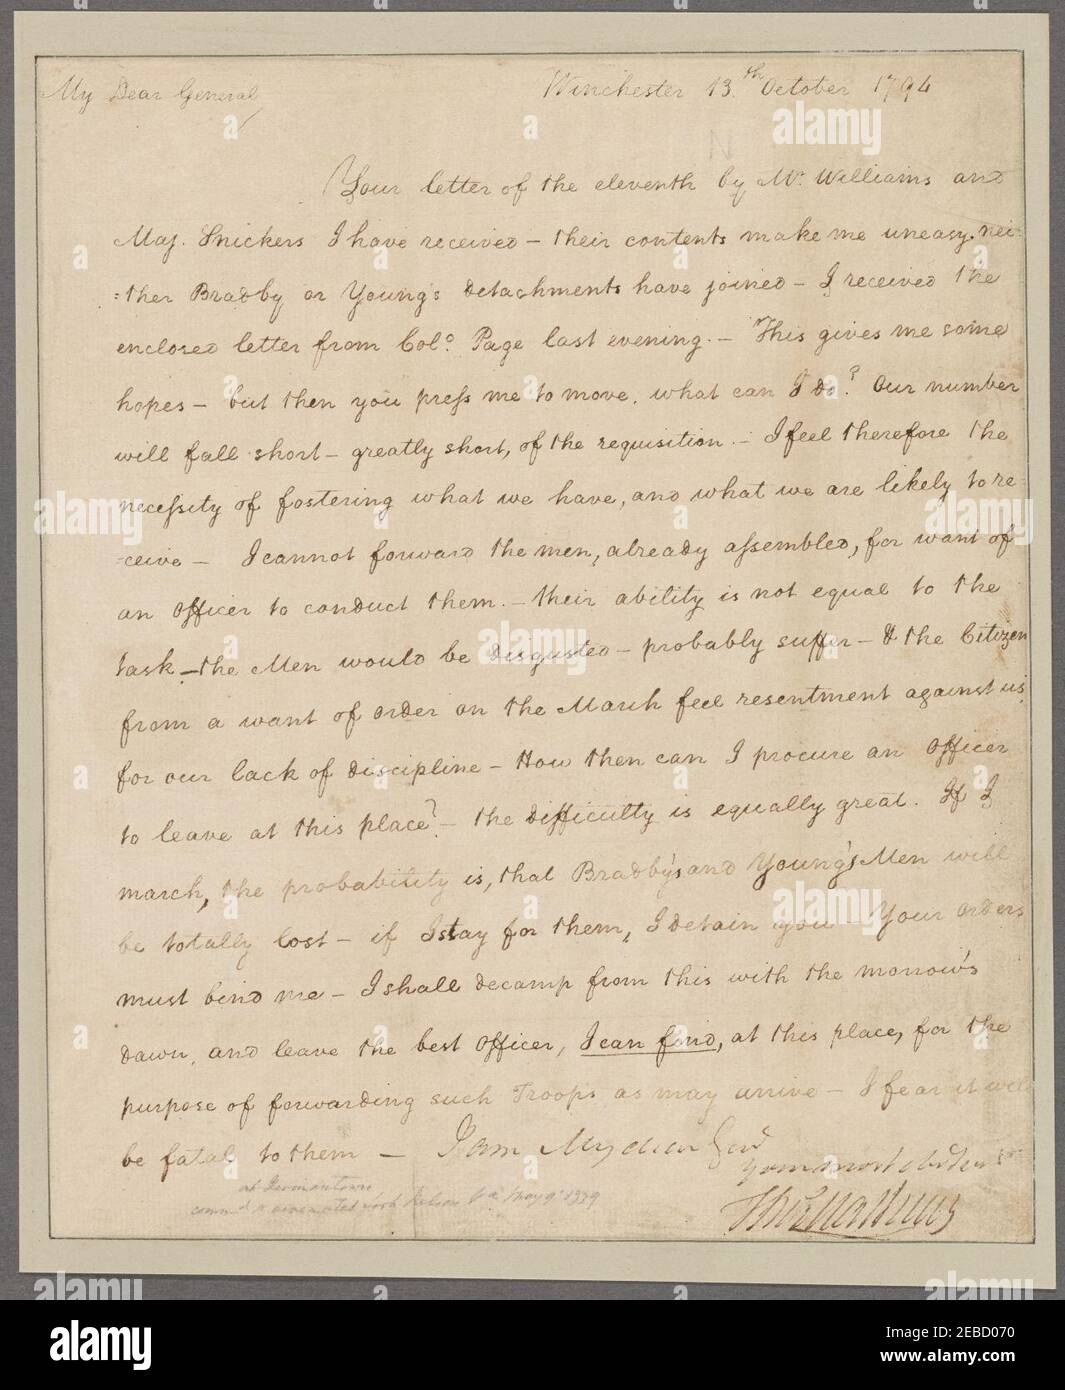 My Dear General, Winchester 13.th October 1794
Your letter of the eleventh by Mr. Williams and
Maj. Snickers I have received – their contents make me uneasy. nei=
=ther Bradby or Young's detachments have joined – I received the
enclosed letter from Colo. Page last evening. – This gives me some
hopes – but then you press me to move. what can I do? Our number
will fall short – greatly short, of the requisition. – I feel therefore the
necessity of fostering what we have, and what we are likely to re=
=ceive – I cannot forward the men, already assembled, for want of
an officer to conduct them. – their ability is not equal to the
task – the Men would be disgusted – probably suffer – & the Citizen
from a want of order on the March feel resentment against us,
for our lack of discipline – How then can I procure an officer
to leave at this place? – the difficulty is equally great. If I
march, the probability is, that Bradby's and Young's Men will
be totally lost – if I stay for them, I detain you – Your orders
must bind me – I shall decamp from this with the morrow's
dawn, and leave the best officer, I can find, at this place, for the
purpose of forwarding such Troops as may arrive – I fear it will
be fatal to them – I am My dear Genl
Your most obedient
Thos Mathews
at Germantown
alamy
Image ID: 2EBD070
www.alamy.com